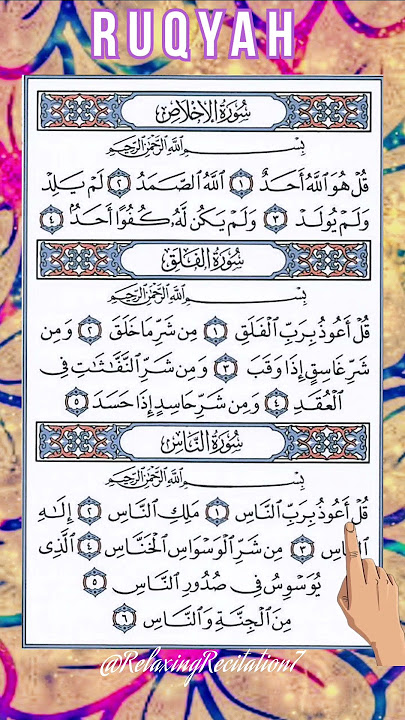 RUQYAH
سُورَةُ الإِخْلَاصِ
بِسْمِ ٱللَّهِ ٱلرَّحْمَٰنِ ٱلرَّحِيمِ
قُلْ هُوَ ٱللَّهُ أَحَدٌ ١ ٱللَّهُ ٱلصَّمَدُ ٢ لَمْ يَلِدْ
وَلَمْ يُولَدْ ٣ وَلَمْ يَكُن لَّهُۥ كُفُوًا أَحَدٌۢ ٤
سُورَةُ الفَلَقِ
بِسْمِ ٱللَّهِ ٱلرَّحْمَٰنِ ٱلرَّحِيمِ
قُلْ أَعُوذُ بِرَبِّ ٱلْفَلَقِ ١ مِن شَرِّ مَا خَلَقَ ٢ وَمِن
شَرِّ غَاسِقٍ إِذَا وَقَبَ ٣ وَمِن شَرِّ ٱلنَّفَّٰثَٰتِ فِى
ٱلْعُقَدِ ٤ وَمِن شَرِّ حَاسِدٍ إِذَا حَسَدَ ٥
سُورَةُ النَّاسِ
بِسْمِ ٱللَّهِ ٱلرَّحْمَٰنِ ٱلرَّحِيمِ
قُلْ أَعُوذُ بِرَبِّ ٱلنَّاسِ ١ مَلِكِ ٱلنَّاسِ ٢ إِلَٰهِ
ٱلنَّاسِ ٣ مِن شَرِّ ٱلْوَسْوَاسِ ٱلْخَنَّاسِ ٤ ٱلَّذِى
يُوَسْوِسُ فِى صُدُورِ ٱلنَّاسِ ٥
مِنَ ٱلْجِنَّةِ وَٱلنَّاسِ ٦
@RelaxingRecitation7